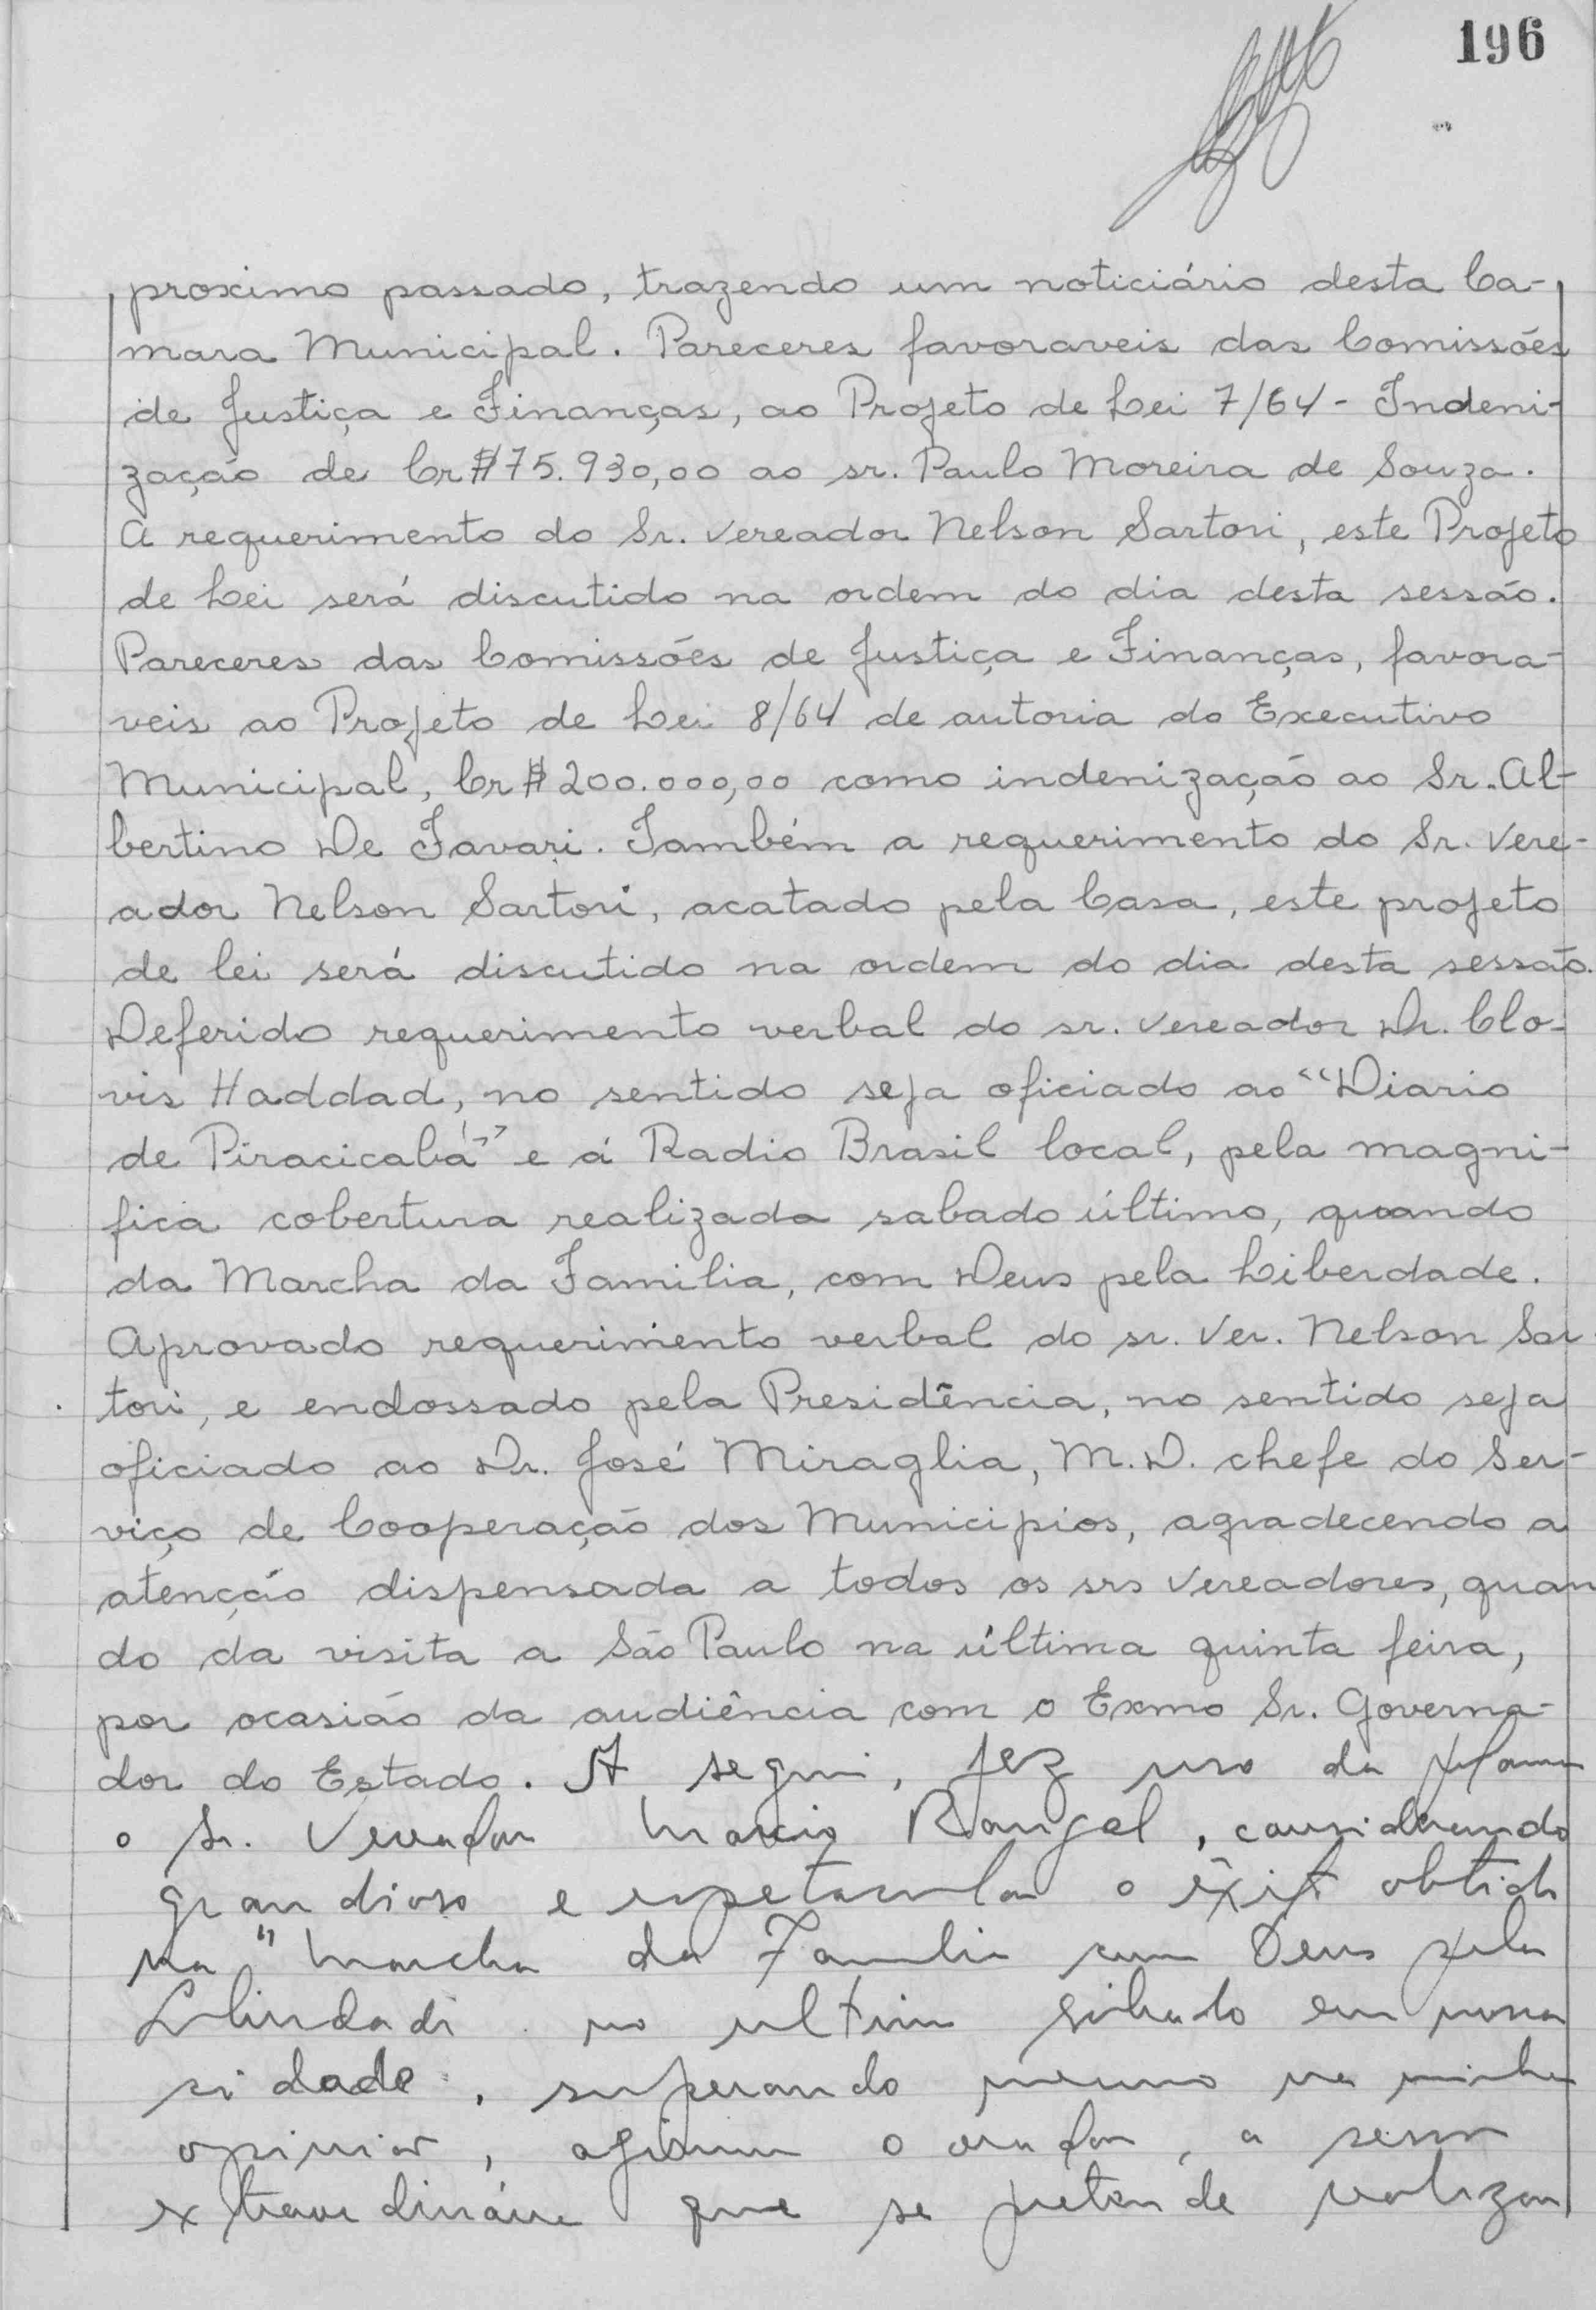 196
proximo passado, trazendo um noticiário desta Ca-
mara Municipal. Pareceres favoraveis das Comissões
de Justiça e Finanças, ao Projeto de Lei 7/64 - Indeni-
zação de Cr$75.930,00 ao sr. Paulo Moreira de Souza.
A requerimento do Sr. Vereador Nelson Sartori, este Projeto
de Lei será discutido na ordem do dia desta sessão.
Pareceres das Comissões de Justiça e Finanças, favora-
veis ao Projeto de Lei 8/64 de autoria do Executivo
Municipal, Cr$200.000,00 como indenização ao Sr. Al-
bertino De Favari. Também a requerimento do Sr. Vere-
ador Nelson Sartori, acatado pela Casa, este projeto
de lei será discutido na ordem do dia desta sessão.
Deferido requerimento verbal do sr. Vereador Dr. Clo-
vis Haddad, no sentido seja oficiado ao "Diario
de Piracicaba" e á Radio Brasil local, pela magni-
fica cobertura realizada sabado último, quando
da Marcha da Familia, com Deus pela Liberdade.
Aprovado requerimento verbal do sr. Ver. Nelson Sar
tori, e endossado pela Presidência, no sentido seja
oficiado ao Dr. José Miraglia, M.D. chefe do Ser-
viço de Cooperação dos Municipios, agradecendo a
atenção dispensada a todos os srs Vereadores, quan
do da visita a São Paulo na última quinta feira,
por ocasião da audiência com o Exmo Sr. Governa-
dor do Estado. A seguir, fez uso da palavra
o Sr. Vereador Marcio Rangel, considerando
grandioso e espetacular o êxito obtido
na "Marcha da Familia com Deus pela
Liberdade no ultimo sábado em nossa
cidade, superando mesmo na minha
opinião, o orador, a sessão
extraordinária que se pretende realizar